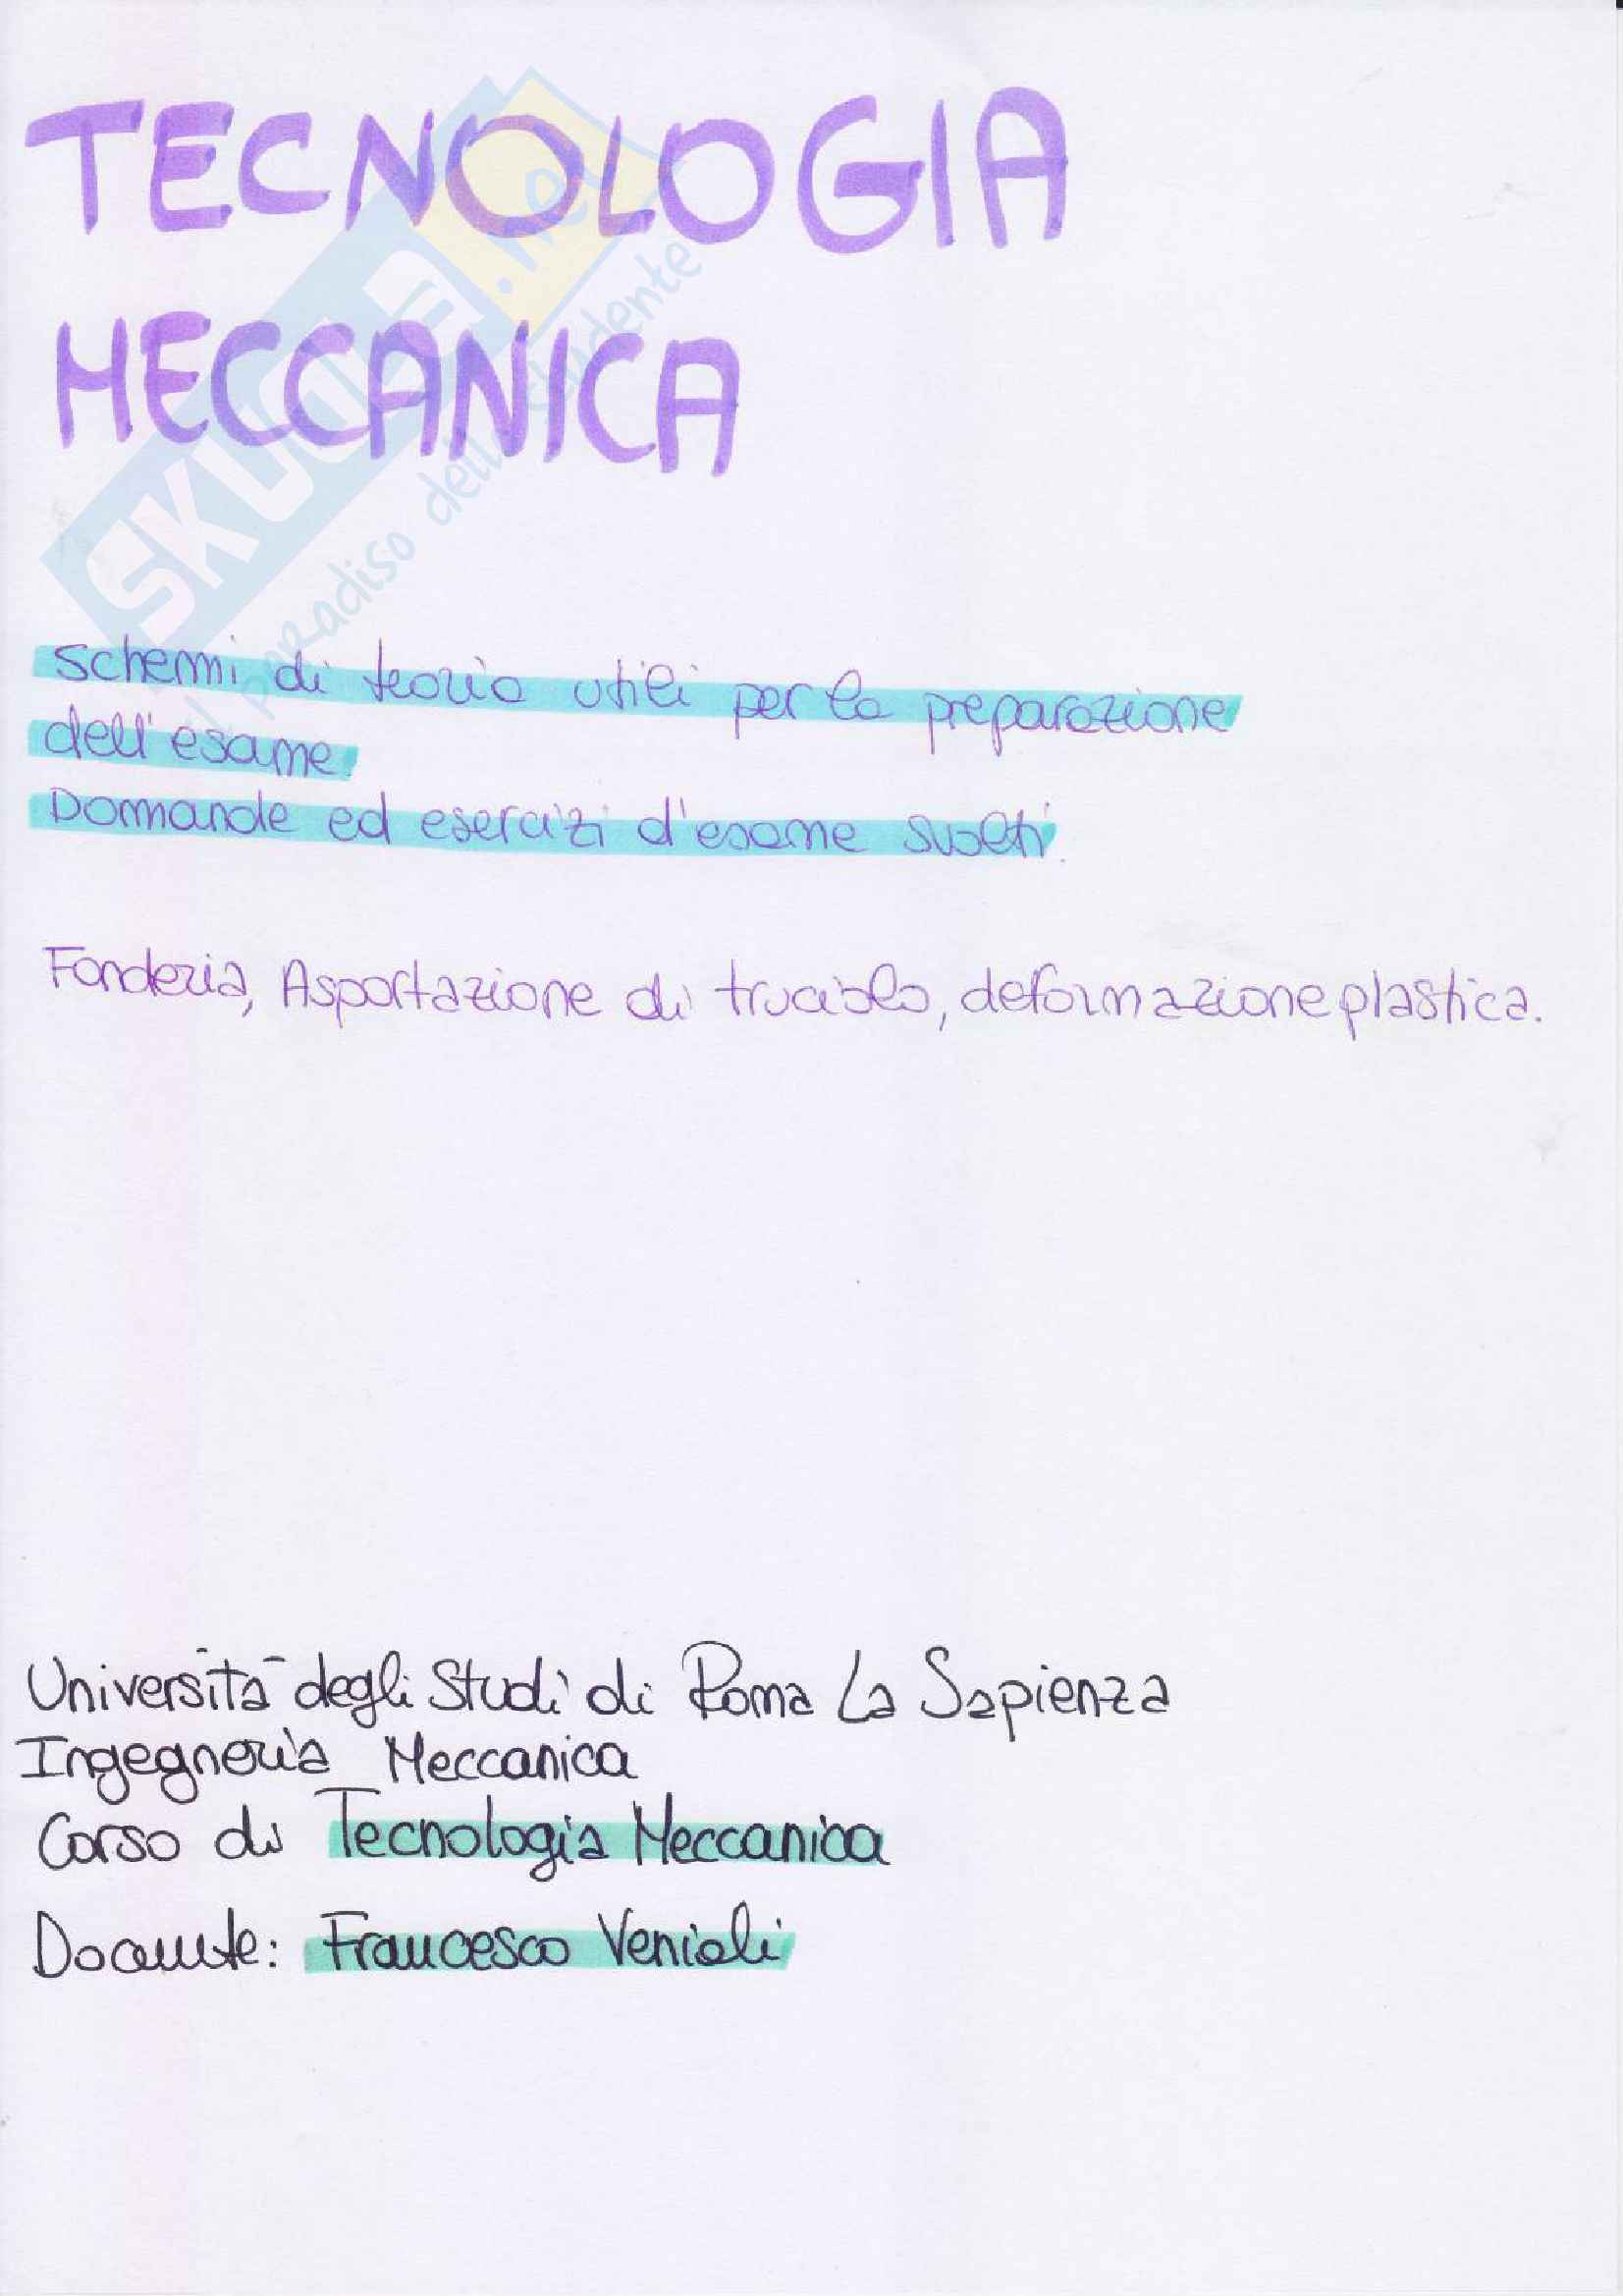 TECNOLOGIA
MECCANICA
SKUOLA.net
il paradiso dello studente
Schemi di teoria utili per la preparazione
dell'esame.
Domande ed esercizi d'esame svolti.
Fonderia, Asportazione di truciolo, deformazione plastica.
Università degli Studi di Roma La Sapienza
Ingegneria Meccanica
Corso di Tecnologia Meccanica
Docente: Francesco Veniali